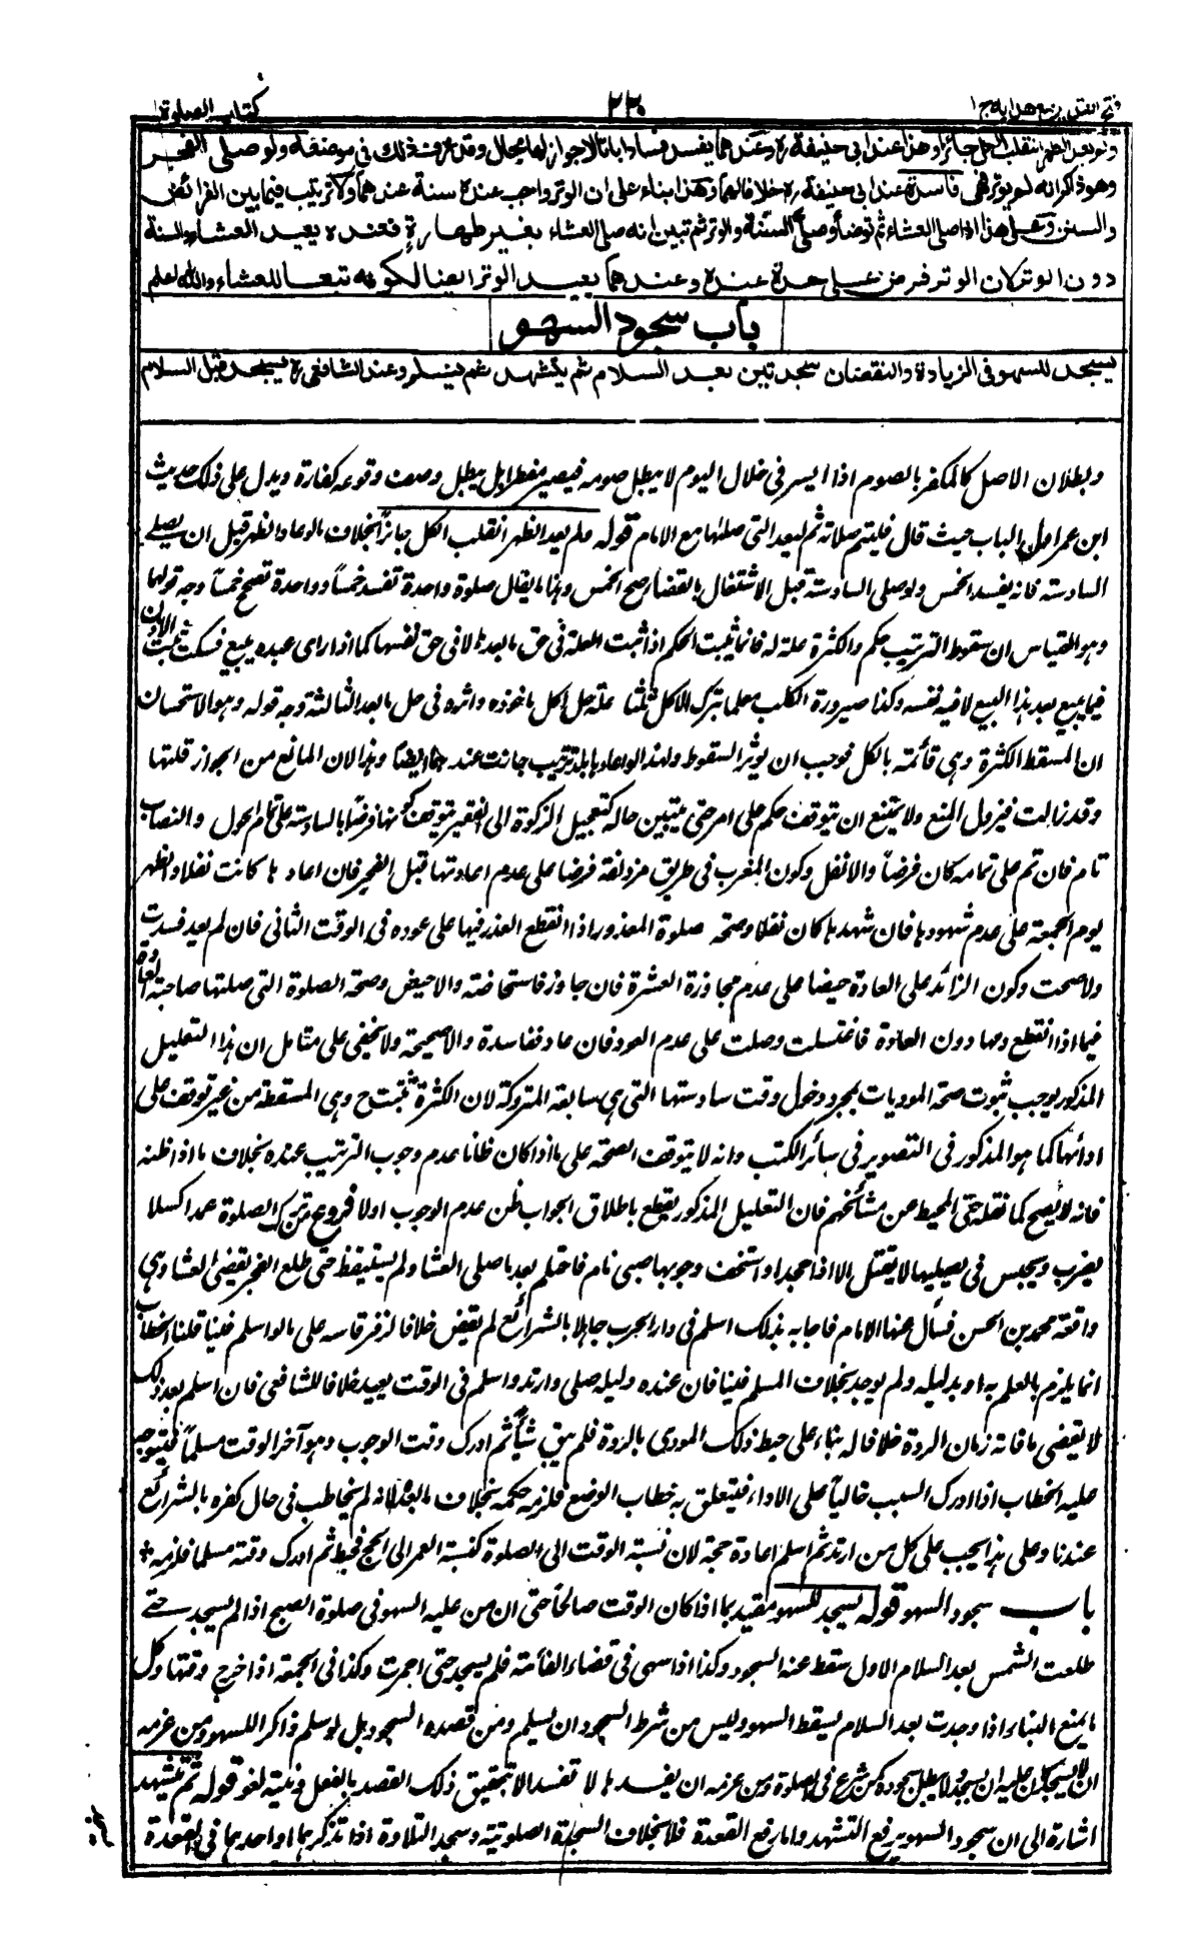 فتح القدير مع هدايه ج ١
٢٢٠
كتاب الصلوة
ولو يعد الظهر انقلب الكل جائزا وهذا عند ابى حنيفة ره وعندهما يفسد فسادا باتا لا جواز لها بحال وقد عرف ذلك فى موضعه ولو صلى الفجر
وهو ذاكر انه لم يوتر فهى فاسدة عند ابى حنيفة ره خلافا لهما وهذا بناء على ان الوتر واجب عنده سنة عندهما ولا ترتيب فيما بين الفرائض
والسنن وعلى هذا اذا صلى العشاء ثم توضأ وصلى السنة والوتر ثم تبين انه صلى العشاء بغير طهارة فعنده يعيد العشاء والسنة
دون الوتر لان الوتر فرض على حدة عنده وعندهما يعيد الوتر ايضا لكونه تبعا للعشاء والله اعلم
باب سجود السهو
يسجد للسهو فى الزيادة والنقصان سجدتين بعد السلام ثم يتشهد ثم يسلم وعند الشافعى ره يسجد قبل السلام
وبطلان الاصل كالمكفر بالصوم اذا ايسر فى خلال اليوم لا يبطل صومه فيصير مفطرا بل يبطل وصف وقوعه كفارة ويدل على ذلك حديث
ابن عمر اصل الباب حيث قال فليتم صلاته ثم ليعد التى صلاها مع الامام قوله ولم يعد الظهر انقلب الكل جائزا بخلاف ما لو عاد الظهر قبل ان يصلى
السادسة فانه يفسد الخمس ولو صلى السادسة قبل الاشتغال بالقضاء صح الخمس وهذا ما يقال صلوة واحدة تفسد خمسا وواحدة تصحح خمسا وجه قولهما
وهو القياس ان سقوط الترتيب حكم والكثرة علة له فانما يثبت الحكم اذا ثبت العلة فى حق ما بعدها لا فى حق نفسها كما اذا راى عبده يبيع فسكت ثبت الاذن
فيما يبيع بعد هذا البيع لا فيه نفسه وكذا صيرورة الكلب معلما بترك الاكل ثلثا علة حل اكل ماخوذه واثره فى حل ما بعد الثالثة وجه قوله وهو الاستحسان
ان المسقط الكثرة وهى قائمة بالكل فوجب ان يوثر السقوط ولهذا لو اعادها بلا ترتيب جازت عندهما ايضا وهذا لان المانع من الجواز قلتها
وقد زالت فيزول المنع ولا يمتنع ان يتوقف حكم على امر حتى يتبين حاله كتعجيل الزكوة الى الفقير يتوقف كونها فرضا بالسادسة على تمام الحول والنصاب
تام فان تم على تمامه كان فرضا والا نفل وكون المغرب فى طريق مزدلفة فرضا على عدم اعادتها قبل الفجر فان اعادها كانت نفلا والظهر
يوم الجمعة على عدم شهودها فان شهدها كان نفلا وصحة صلوة المعذور اذا انقطع العذر فيها على عوده فى الوقت الثانى فان لم يعد فسدت
والا صحت وكون الزائد على العادة حيضا على عدم مجاوزة العشرة فان جاوز فاستحاضة والا حيض وصحة الصلوة التى صلتها صاحبة العادة
فيما اذا انقطع دمها دون العادة فاغتسلت وصلت على عدم العود فان عاد ففاسدة والا صحيحة ولا يخفى على متامل ان هذا التعليل
المذكور يوجب ثبوت صحة الموديات بمجرد دخول وقت سادستها التى هى سابعة المتروكة لان الكثرة تثبت ح وهى المسقطة من غير توقف على
ادائها كما هو المذكور فى التصوير فى سائر الكتب وانه لا يتوقف الصحة على ما اذا كان ظانا عدم وجوب الترتيب عنده بخلاف ما اذا ظنه
فانه لا يصح كما نقله فى المحيط عن مشائخهم فان التعليل المذكور يقطع باطلاق الجواب ظن عدم الوجوب اولا فروع ترك الصلوة عمدا كسلا
يضرب ويحبس فى يصليها لا يقتل الا اذا جحد او استخف وجوبها صبى نام فاحتلم بعد ما صلى العشاء ولم يستيقظ حتى طلع الفجر يقضى العشاء وهى
واقعة محمد بن الحسن فسأل عنها الامام فاجابه بذلك اسلم فى دار الحرب جاهلا بالشرائع لم يقض خلافا لزفر قاسه على ما لو اسلم فينا قلنا الخطاب
انما يلزم بالعلم به او بدليله ولم يوجد بخلاف المسلم فينا فان عنده دليله صلى وارتد واسلم فى الوقت يعيد خلافا للشافعى فان اسلم بعد ذلك
لا يقضى ما فاته زمان الردة خلافا له بناء على حبط ذلك المودى بالردة فلم يبق شيأ ثم ادرك وقت الوجوب وهو آخر الوقت مسلما فيتوجه
عليه الخطاب اذا ادرك السبب خاليا على الاداء فيتعلق به خطاب الوضع فلزمه حكمه بخلاف ما بعده لانه لم يخاطب فى حال كفره بالشرائع
عندنا وعلى هذا يجب على كل من ارتد ثم اسلم اعادة حجة لان نسبة الوقت الى الصلوة كنسبة العمر الى الحج فحبط ثم ادرك وقته مسلما فلزمه
باب سجود السهو قوله يسجد للسهو مقيد بما اذا كان الوقت صالحا حتى ان من عليه السهو فى صلوة الصبح اذا لم يسجد حتى
طلعت الشمس بعد السلام الاول سقط عنه السجود وكذا اذا سهى فى قضاء الفائتة فلم يسجد حتى احمرت وكذا فى الجمعة اذا خرج وقتها وكل
ما يمنع البناء اذا وجدت بعد السلام يسقط السهو وليس من شرط السجود ان يسلم ومن قصده السجود بل لو سلم ذاكرا للسهو ومن عزمه
ان لا يسجد كان عليه ان يسجد ولا يبطل سجوده كمن شرع فى الصلوة ومن عزمه ان يفسدها لا تفسد الا بتحقيق ذلك القصد بالفعل ونيته لغو قوله ثم يتشهد
اشارة الى ان سجود السهو يرفع التشهد واما رفع القعدة فلا بخلاف السجدة الصلوتية وسجد التلاوة اذا تذكرهما او احدهما فى القعدة